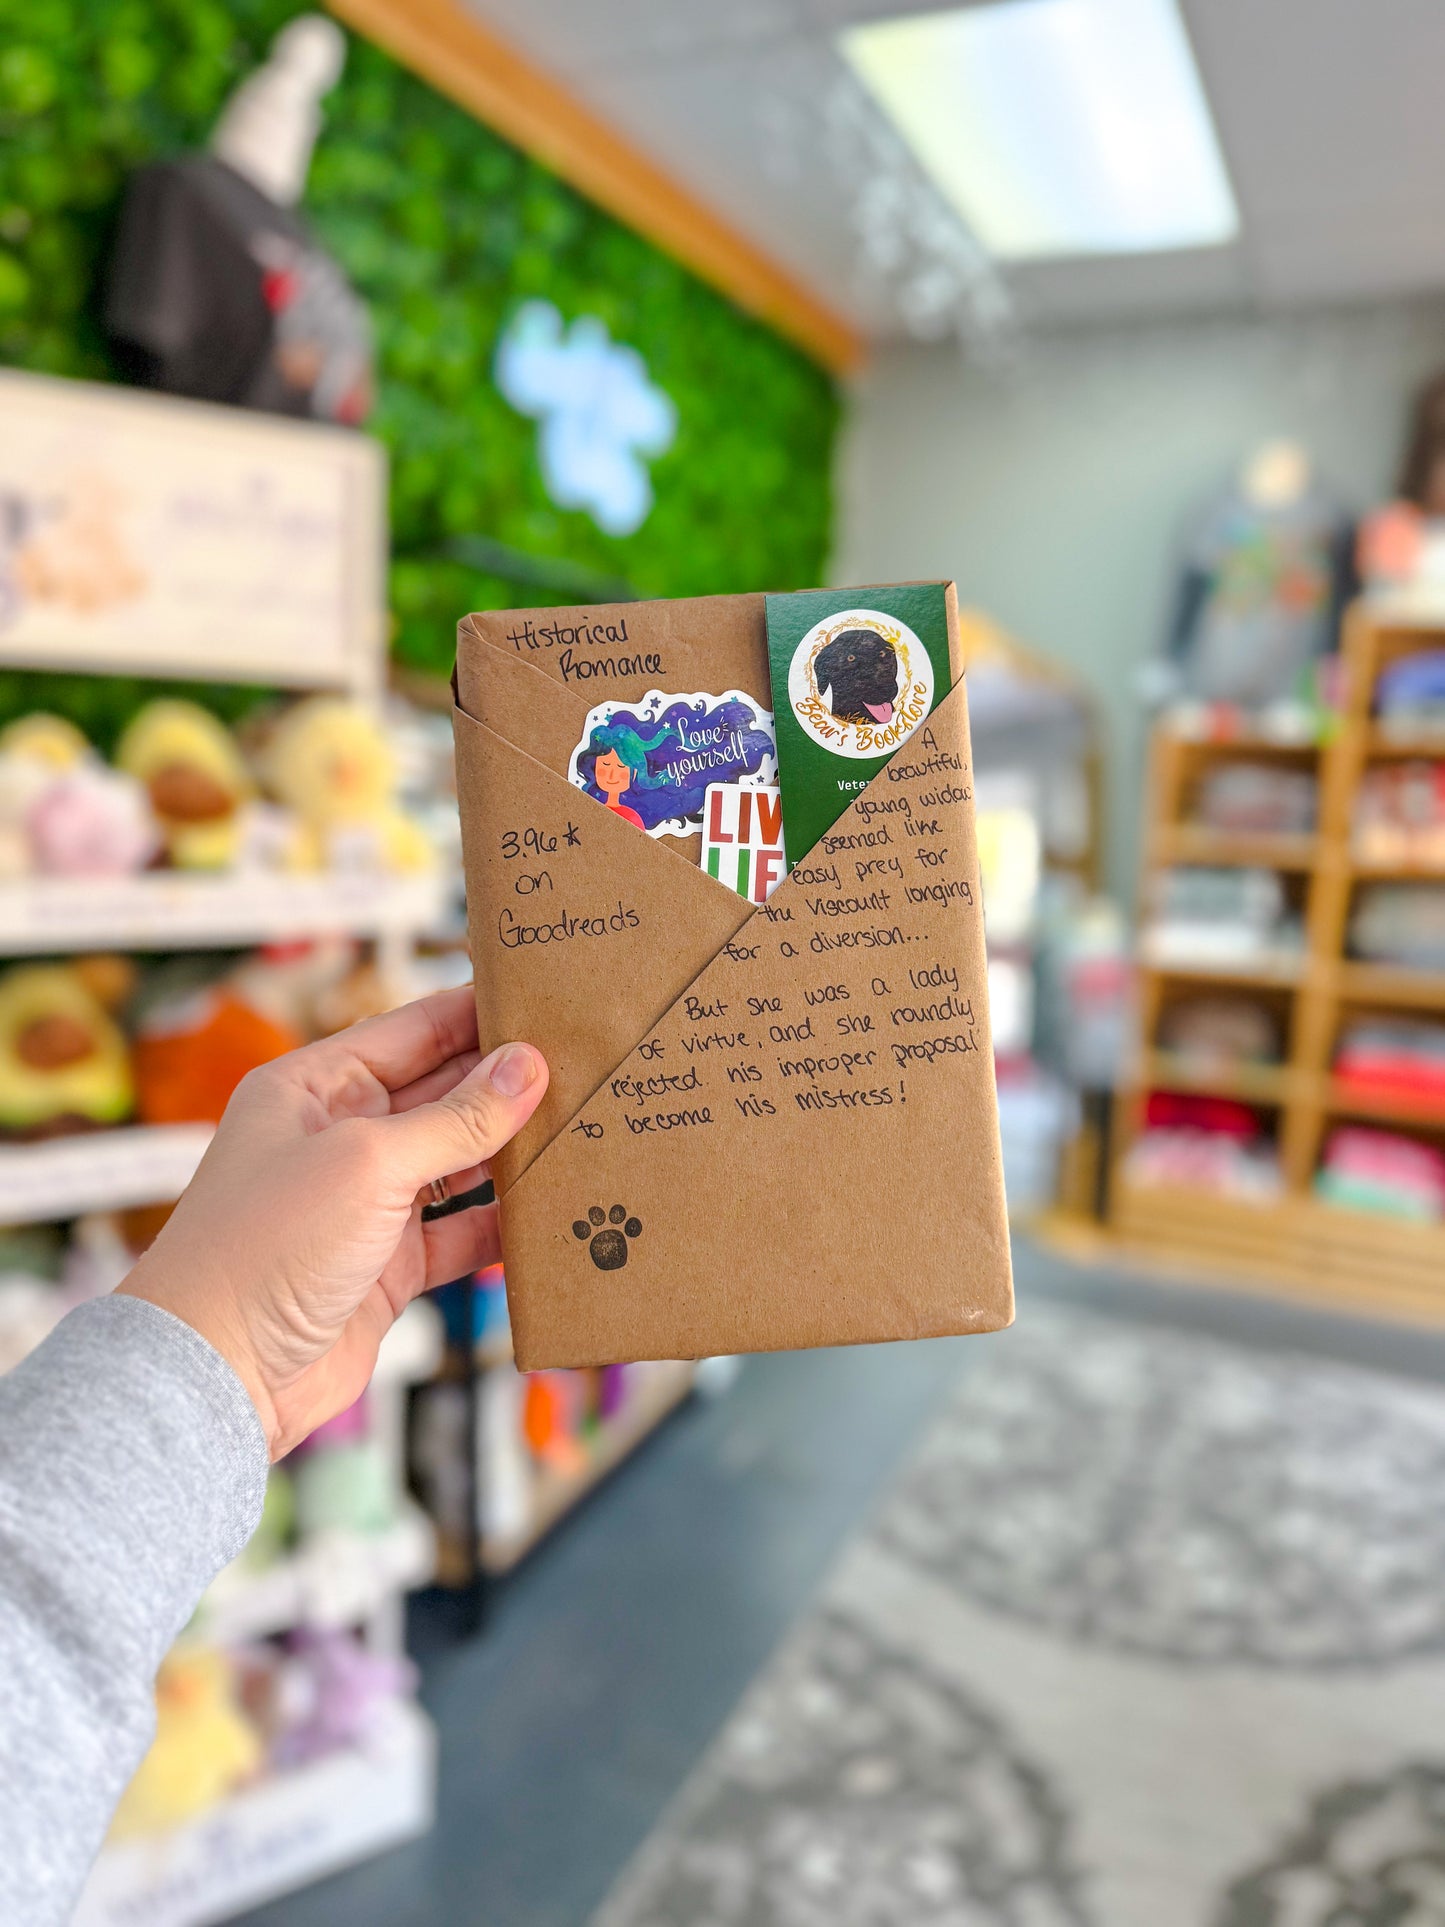 Historical
Romance
Love
yourself
LIV
LIFE
Bear's Bookstore
3.96★
on
Goodreads
A
beautiful,
young widow
seemed like
easy prey for
the Viscount longing
for a diversion...
But she was a lady
of virtue, and she roundly
rejected his improper proposal
to become his mistress!